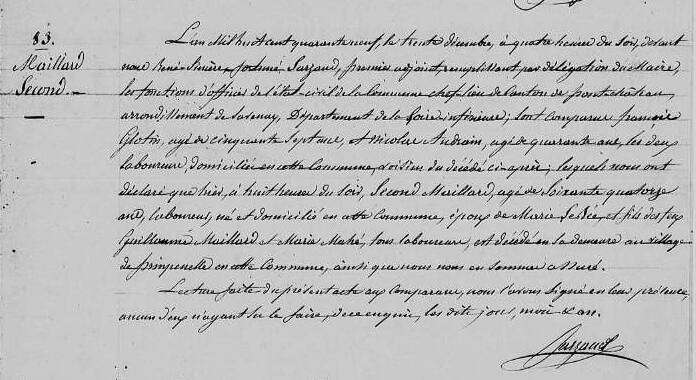 83.
Maillard
Second.
L'an Mil huit cent quarante neuf, le trente décembre, à quatre heures du soir, devant
nous René-Sinère-fortuné Sarzaud, premier adjoint, remplissant par délégation du Maire,
les fonctions d'officier de l'état-civil de la Commune chef-lieu de Canton de pontchâteau,
arrondissement de Savenay, Département de la Loire inférieure; sont comparus françois
Glotin, agé de cinquante sept ans, et Nicolas Audrain, agé de quarante ans, les deux
laboureurs, domiciliés en cette Commune, voisins du décédé ci-après; lesquels nous ont
déclaré que hier, à huit heures du soir, Second Maillard, agé de soixante quatorze
ans, laboureur, né et domicilié en cette Commune, époux de Marie et fils des feux
Guillaume Maillard et Marie Mahé, tous laboureurs, est décédé en sa demeure au village
de prinpenelle en cette Commune, ainsi que nous nous en sommes assuré.
Lecture faite du présent acte aux Comparans, nous l'avons signé en leur présence,
aucun d'eux n'ayant su le faire, de ce enquis, les dits jour, mois et an.
Sarzaud